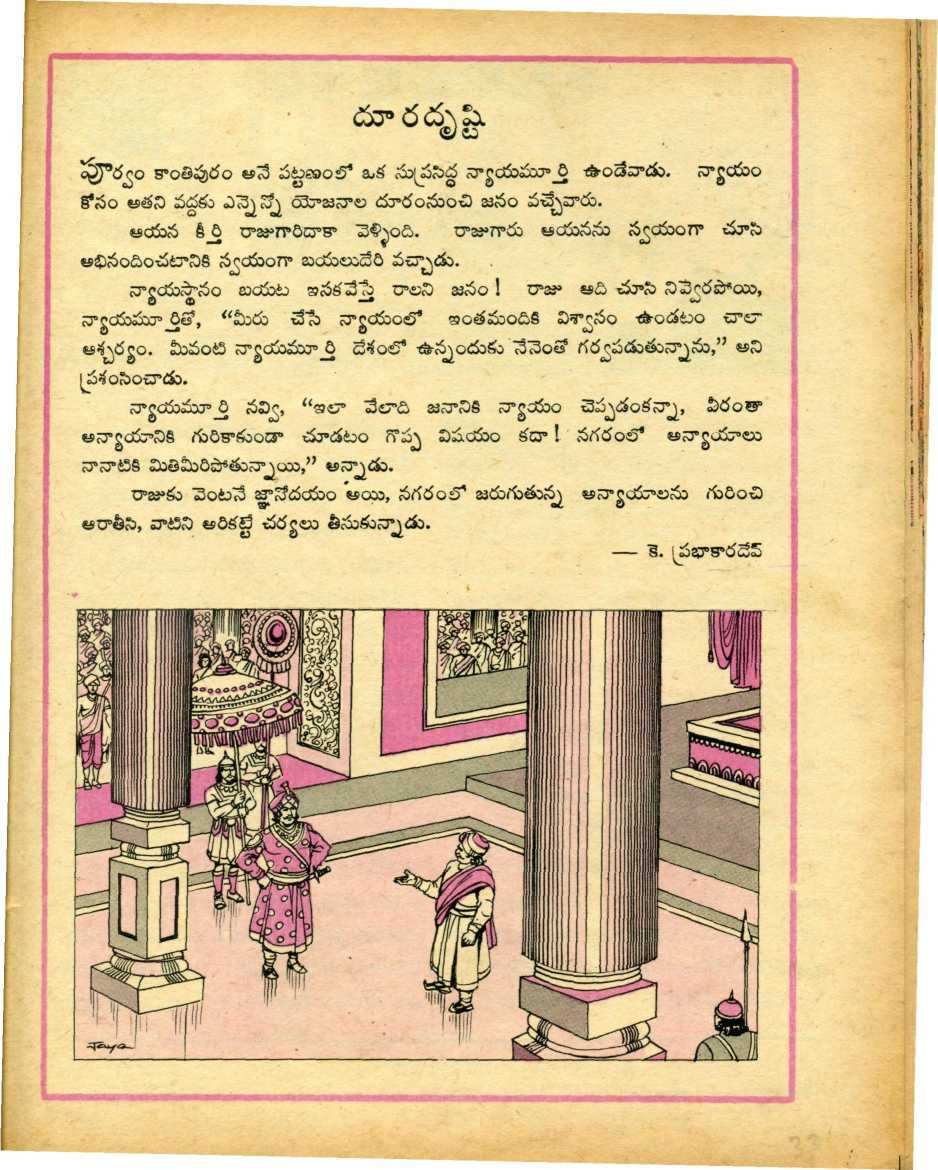 దూరదృష్టి
పూర్వం కాంతిపురం అనే పట్టణంలో ఒక సుప్రసిద్ధ న్యాయమూర్తి ఉండేవాడు. న్యాయం
కోసం అతని వద్దకు ఎన్నెన్నో యోజనాల దూరంనుంచి జనం వచ్చేవారు.
ఆయన కీర్తి రాజుగారిదాకా వెళ్ళింది. రాజుగారు ఆయనను స్వయంగా చూసి
అభినందించటానికి స్వయంగా బయలుదేరి వచ్చాడు.
న్యాయస్థానం బయట ఇసకవేస్తే రాలని జనం! రాజు అది చూసి నివ్వెరపోయి,
న్యాయమూర్తితో, “మీరు చేసే న్యాయంలో ఇంతమందికి విశ్వాసం ఉండటం చాలా
ఆశ్చర్యం. మీవంటి న్యాయమూర్తి దేశంలో ఉన్నందుకు నేనెంతో గర్వపడుతున్నాను,” అని
ప్రశంసించాడు.
న్యాయమూర్తి నవ్వి, “ఇలా వేలాది జనానికి న్యాయం చెప్పడంకన్నా, వీరంతా
అన్యాయానికి గురికాకుండా చూడటం గొప్ప విషయం కదా! నగరంలో అన్యాయాలు
నానాటికి మితిమీరిపోతున్నాయి,” అన్నాడు.
రాజుకు వెంటనే జ్ఞానోదయం అయి, నగరంలో జరుగుతున్న అన్యాయాలను గురించి
ఆరాతీసి, వాటిని అరికట్టే చర్యలు తీసుకున్నాడు.
— కె. ప్రభాకారదేవ్
Jaya